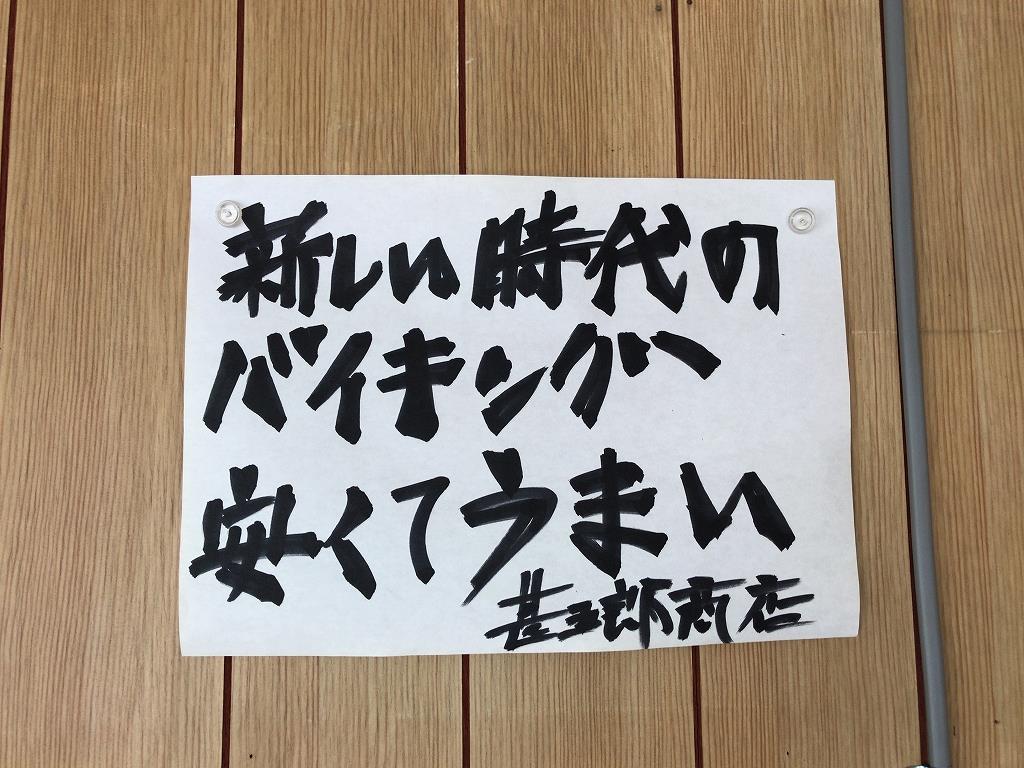 新しい時代の
バイキングへ
安くてうまい
甚五郎商店